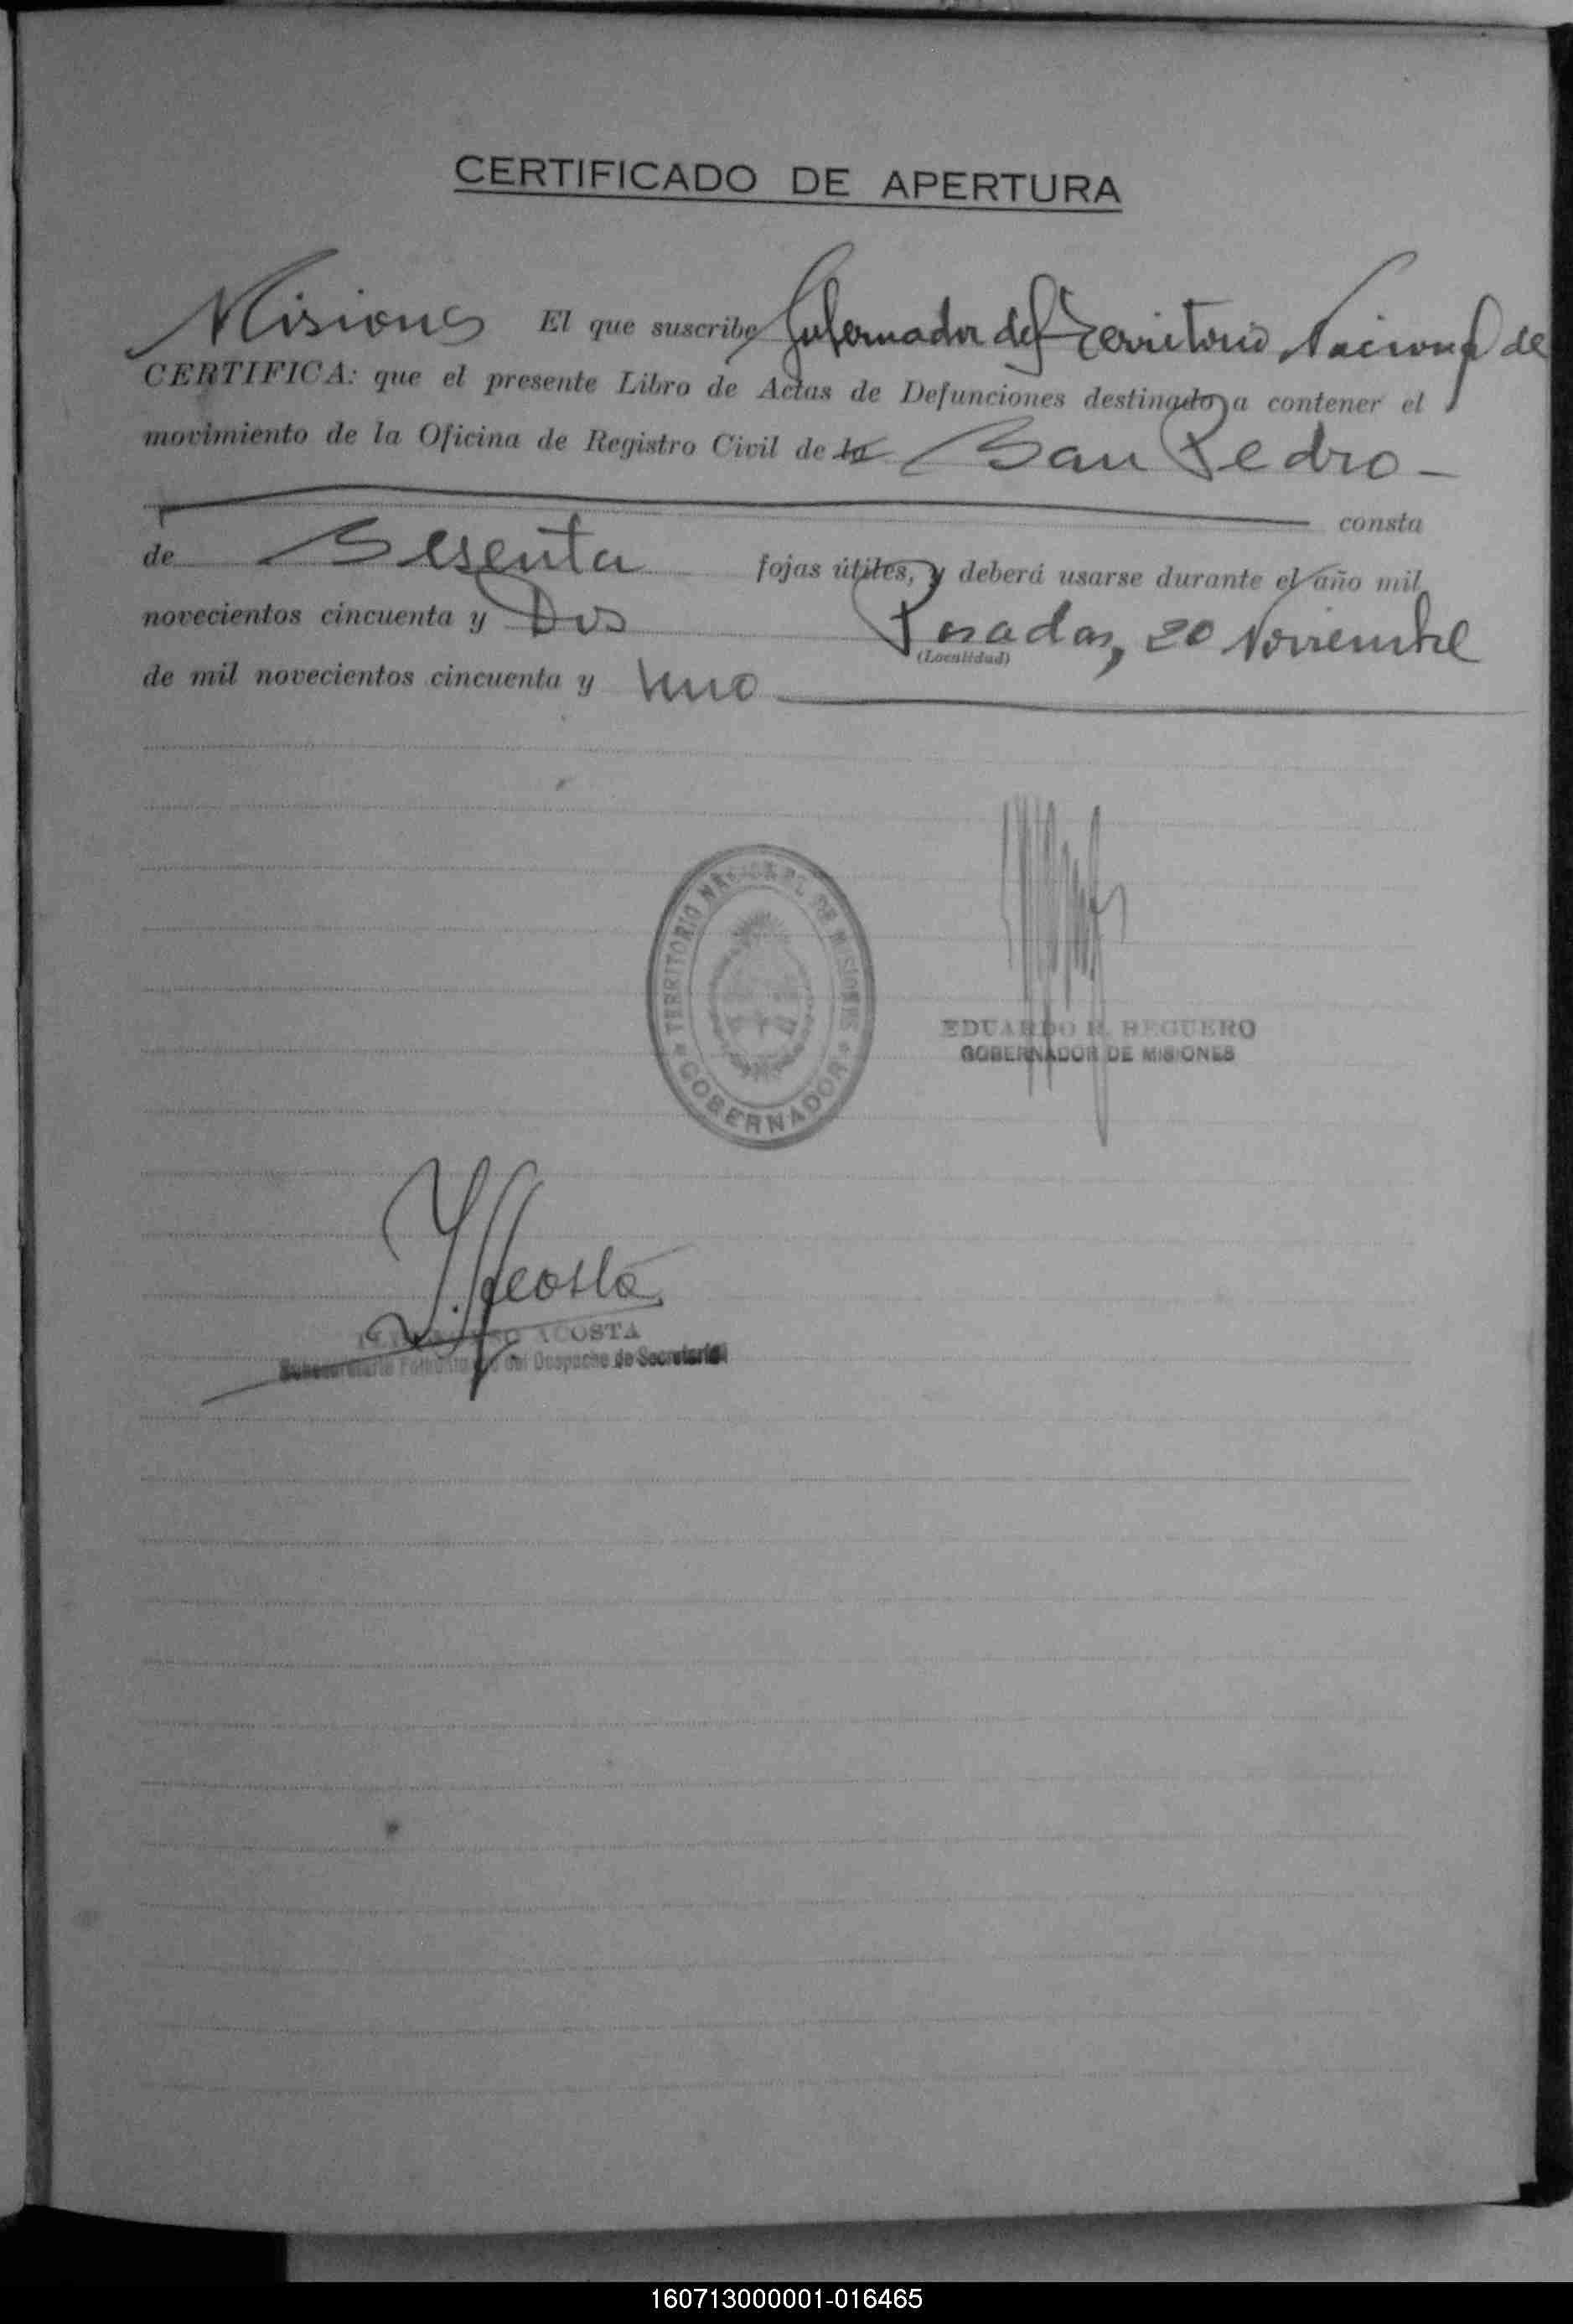 CERTIFICADO DE APERTURA
Misiones El que suscribe Gobernador del Territorio Nacional de
CERTIFICA: que el presente Libro de Actas de Defunciones destinado a contener el
movimiento de la Oficina de Registro Civil de la San Pedro -
consta
de Sesenta fojas útiles, y deberá usarse durante el año mil
novecientos cincuenta y Dos Posadas, 20 Noviembre
(Localidad)
de mil novecientos cincuenta y uno
TERRITORIO NACIONAL DE MISIONES
GOBERNADOR
EDUARDO R. REGUERO
GOBERNADOR DE MISIONES
Acosta
ACOSTA
del Despacho de Secretaría
160713000001-016465